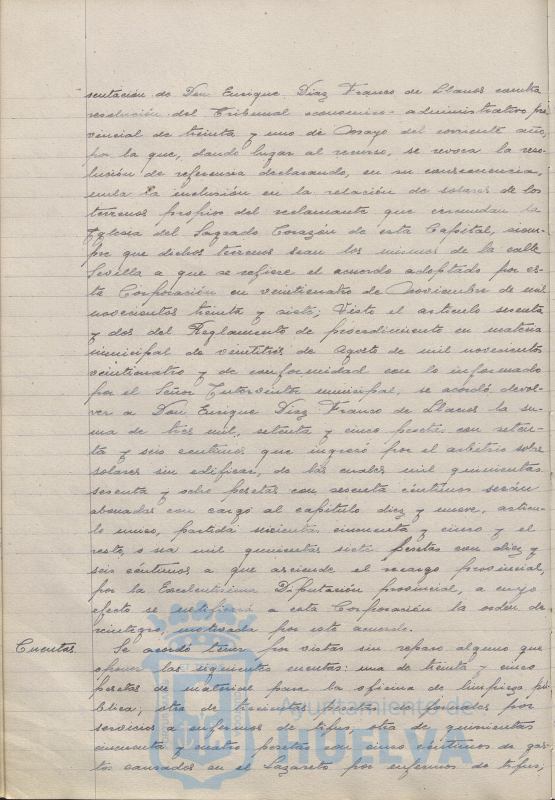 sentación de Don Enrique Díaz Franco de Llanos contra
resolución del Tribunal económico-administrativo pro-
vincial de treinta y uno de Mayo del corriente año,
por la que, dando lugar al recurso, se revoca la reso-
lusión de referencia declarando, en su consecuencia,
nula la inclusión en la relación de solares de los
terrenos propios del reclamante que circundan la
Iglesia del Sagrado Corazón de esta Capital, siem-
pre que dichos terrenos sean los mismos de la calle
Sevilla a que se refiere el acuerdo adoptado por es-
ta Corporación en veinticuatro de Noviembre de mil
novecientos treinta y siete; Visto el artículo sesenta
y dos del Reglamento de procedimiento en materia
municipal de veintitrés de Agosto de mil novecientos
veinticuatro y de conformidad con lo informado
por el Señor Interventor municipal, se acordó devol-
ver a Don Enrique Díaz Franco de Llanos la su-
ma de tres mil, setenta y cinco pesetas con seten-
ta y seis céntimos que ingresó por el arbitrio sobre
solares sin edificar, de las cuales mil quinientas
sesenta y ocho pesetas con sesenta céntimos serán
abonadas con cargo al capítulo diez y nueve, artícu-
lo único, partida seiscientas cincuenta y cinco y el
resto, o sea mil quinientas siete pesetas con diez y
seis céntimos a que asciende el recargo provincial,
por la Excelentísima Diputación provincial, a cuyo
efecto se notificará a esta Corporación la orden de
reintegro, motivada por este acuerdo.
Cuentas. Se acordó tener por vistas sin reparo alguno que
oponer las siguientes cuentas: una de treinta y cinco
pesetas de material para la oficina de limpieza pú-
blica; otra de trescientas pesetas de jornales por
servicios a enfermos de tifus, otra de quinientas
cincuenta y cuatro pesetas con cinco céntimos de gas-
tos causados en el Lazareto por enfermos de tifus;
Ayuntamiento de
HUELVA